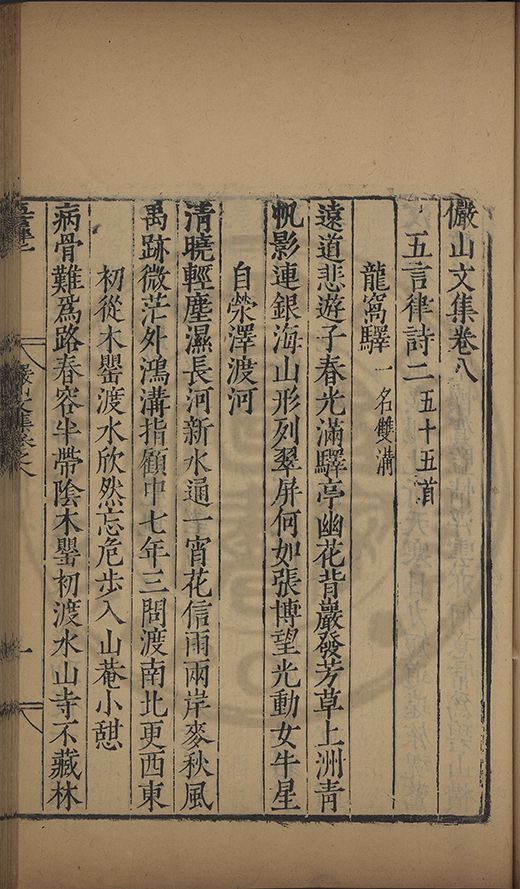 儼山文集卷八
五言律詩二 五十五首
龍窩驛 一名雙溝
遠道悲遊子春光滿驛亭幽花背巖發芳草上洲青
帆影連銀海山形列翠屏何如張博望光動女牛星
自滎澤渡河
清曉輕塵濕長河新水通一宵花信雨兩岸麥秋風
禹跡微茫外鴻溝指顧中七年三問渡南北更西東
初從木罌渡水欣然忘危步入山菴小憇
病骨難爲路春容半帶陰木罌初渡水山寺不藏林
儼山文集卷之八
一